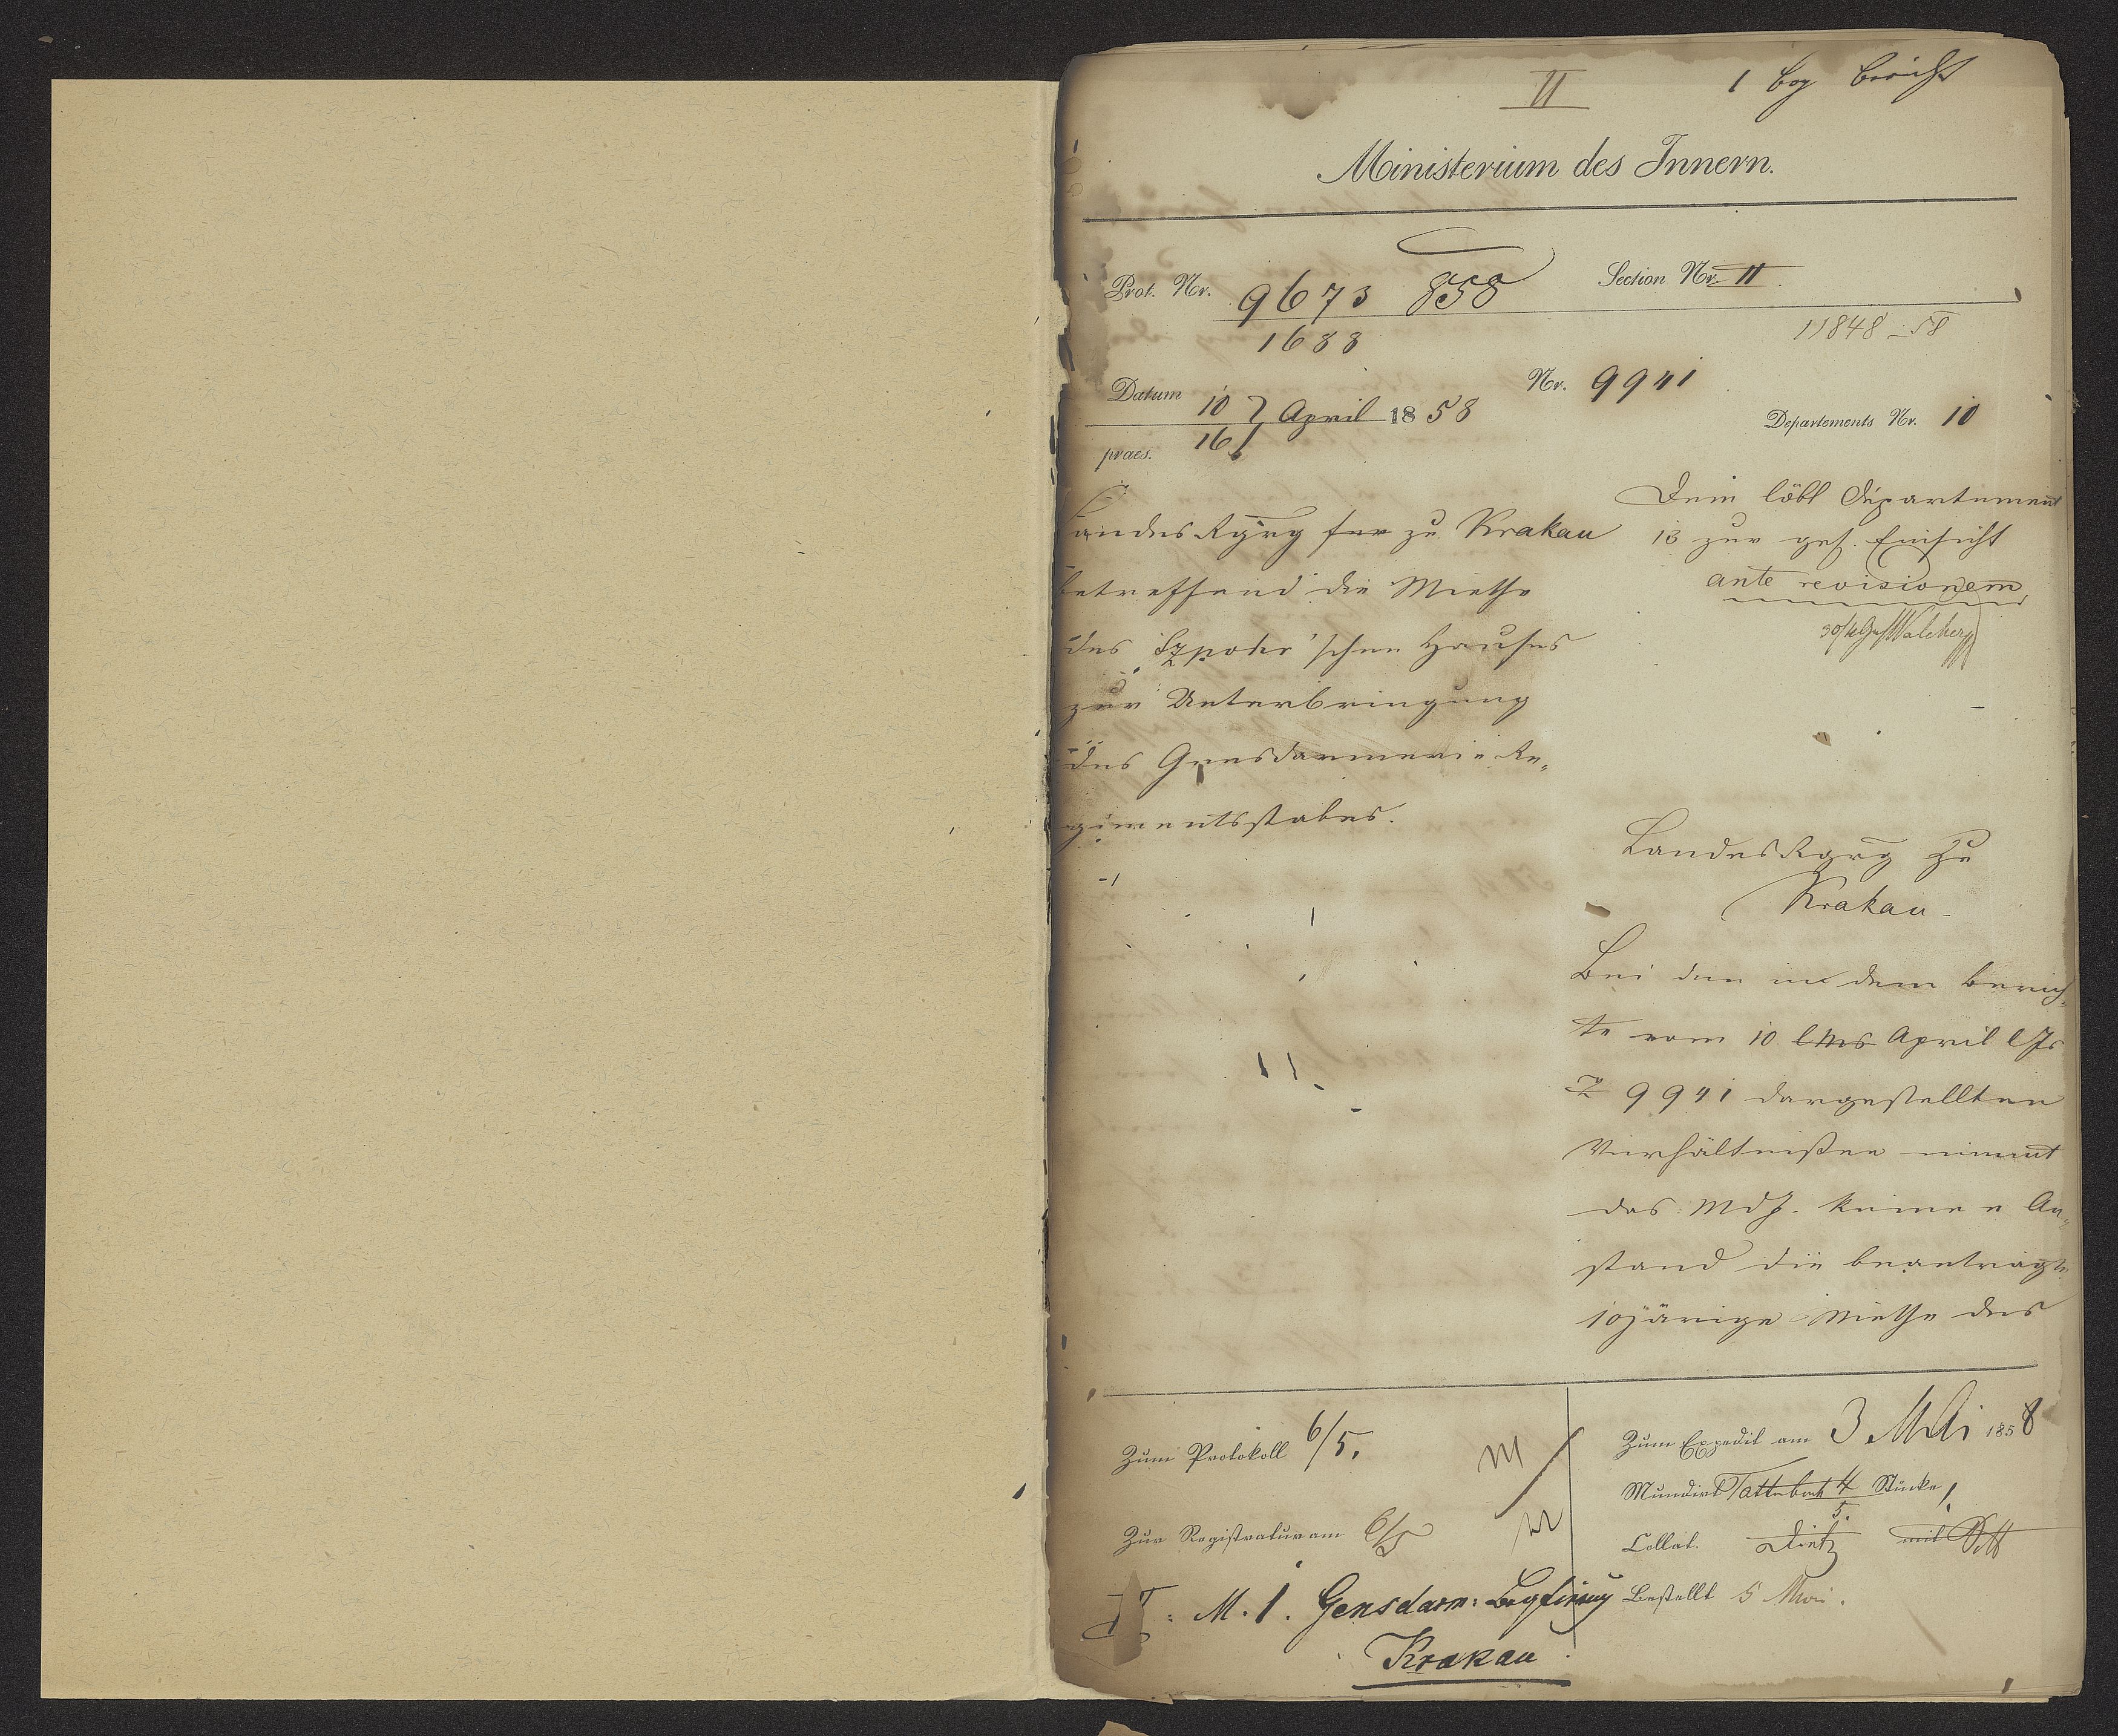 II
1 bog Bericht
Ministerium des Innern.
Prot. Nr. 9673 858
1688
Section Nr. II
11848-58
Datum 10 April 1858
praes. 16
Nr. 9941
Departements Nr. 10
LandesRgrg zu Krakau
betreffend die Miethe
des 'schen Hauses
zur Unterbringung
des Gensdarmerie Re-
gimentsstabes.
Dem löbl Departement
13 zur gef. Einsicht
ante revisionem
LandesRgrg zu
Krakau.
Bei den in dem Berich-
te vom 10. lMts April lJs
Z 9941 dargestellten
Verhältnißen nimmt
das MdJ. keinen An-
stand die beantragte
10järige Miethe des
Zum Protokoll 6/5.
Zur Registratur am 6/5
Zum Expedit am 3 Mai 1858
Mundirt 4/5. Stücke
Collat. Dietz mit
Bestellt 5 Mai.
M. 1. Gensdarm:
Krakau